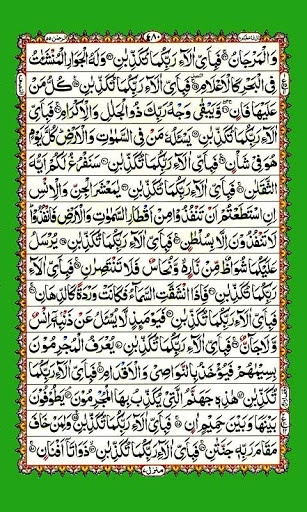 وَالْمَرْجَانُ ۚ فَبِاَيِّ اٰلَآءِ رَبِّكُمَا تُكَذِّبٰنِ ۚ وَلَهُ الْجَوَارِ الْمُنْشَئٰتُ
فِي الْبَحْرِ كَالْاَعْلَامِ ۚ فَبِاَيِّ اٰلَآءِ رَبِّكُمَا تُكَذِّبٰنِ ۚ كُلُّ مَنْ
عَلَيْهَا فَانٍ ۚ وَّيَبْقٰى وَجْهُ رَبِّكَ ذُو الْجَلٰلِ وَالْاِكْرَامِ ۚ فَبِاَيِّ
اٰلَآءِ رَبِّكُمَا تُكَذِّبٰنِ يَسْـَٔلُهٗ مَنْ فِي السَّمٰوٰتِ وَالْاَرْضِ كُلَّ يَوْمٍ
هُوَ فِيْ شَاْنٍ ۚ فَبِاَيِّ اٰلَآءِ رَبِّكُمَا تُكَذِّبٰنِ سَنَفْرُغُ لَكُمْ اَيُّهَ
الثَّقَلٰنِ ۚ فَبِاَيِّ اٰلَآءِ رَبِّكُمَا تُكَذِّبٰنِ يٰمَعْشَرَ الْجِنِّ وَالْاِنْسِ
اِنِ اسْتَطَعْتُمْ اَنْ تَنْفُذُوْا مِنْ اَقْطَارِ السَّمٰوٰتِ وَالْاَرْضِ فَانْفُذُوْا
لَا تَنْفُذُوْنَ اِلَّا بِسُلْطٰنٍ ۚ فَبِاَيِّ اٰلَآءِ رَبِّكُمَا تُكَذِّبٰنِ يُرْسَلُ
عَلَيْكُمَا شُوَاظٌ مِّنْ نَّارٍ وَّنُحَاسٌ فَلَا تَنْتَصِرٰنِ ۚ فَبِاَيِّ اٰلَآءِ
رَبِّكُمَا تُكَذِّبٰنِ فَاِذَا انْشَقَّتِ السَّمَآءُ فَكَانَتْ وَرْدَةً كَالدِّهَانِ ۚ
فَبِاَيِّ اٰلَآءِ رَبِّكُمَا تُكَذِّبٰنِ فَيَوْمَئِذٍ لَّا يُسْـَٔلُ عَنْ ذَنْۢبِهٖٓ اِنْسٌ
وَّلَا جَآنٌّ ۚ فَبِاَيِّ اٰلَآءِ رَبِّكُمَا تُكَذِّبٰنِ يُعْرَفُ الْمُجْرِمُوْنَ
بِسِيْمٰهُمْ فَيُؤْخَذُ بِالنَّوَاصِيْ وَالْاَقْدَامِ ۚ فَبِاَيِّ اٰلَآءِ رَبِّكُمَا
تُكَذِّبٰنِ هٰذِهٖ جَهَنَّمُ الَّتِيْ يُكَذِّبُ بِهَا الْمُجْرِمُوْنَ ۘ يَطُوْفُوْنَ
بَيْنَهَا وَبَيْنَ حَمِيْمٍ اٰنٍ ۚ فَبِاَيِّ اٰلَآءِ رَبِّكُمَا تُكَذِّبٰنِ وَلِمَنْ خَافَ
مَقَامَ رَبِّهٖ جَنَّتٰنِ ۚ فَبِاَيِّ اٰلَآءِ رَبِّكُمَا تُكَذِّبٰنِ ذَوَاتَآ اَفْنَانٍ ۚ